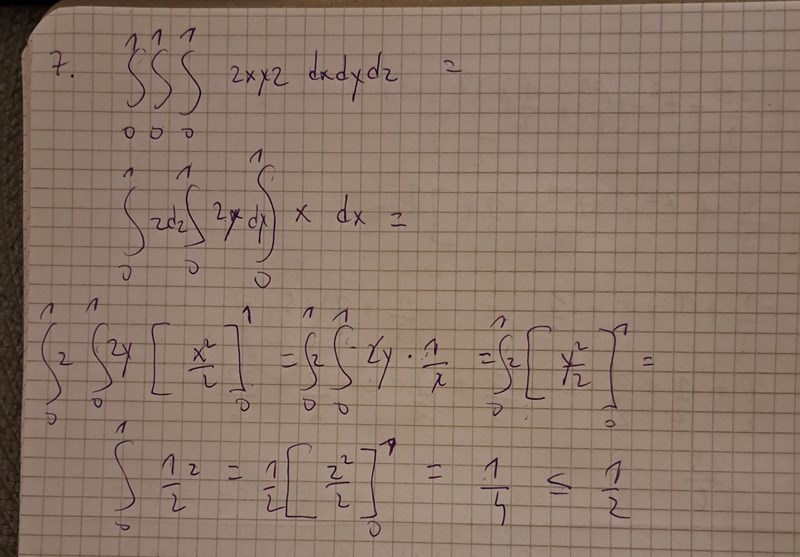 7. ∫₀¹ ∫₀¹ ∫₀¹ 2xyz dxdydz =
∫₀¹ zdz ∫₀¹ 2y dy ∫₀¹ x dx =
∫₀¹ z ∫₀¹ 2y [x²/2]₀¹ = ∫₀¹ z ∫₀¹ 2y · 1/2 = ∫₀¹ z [y²/2]₀¹ =
∫₀¹ 1/2 z = 1/2 [z²/2]₀¹ = 1/4 ≤ 1/2